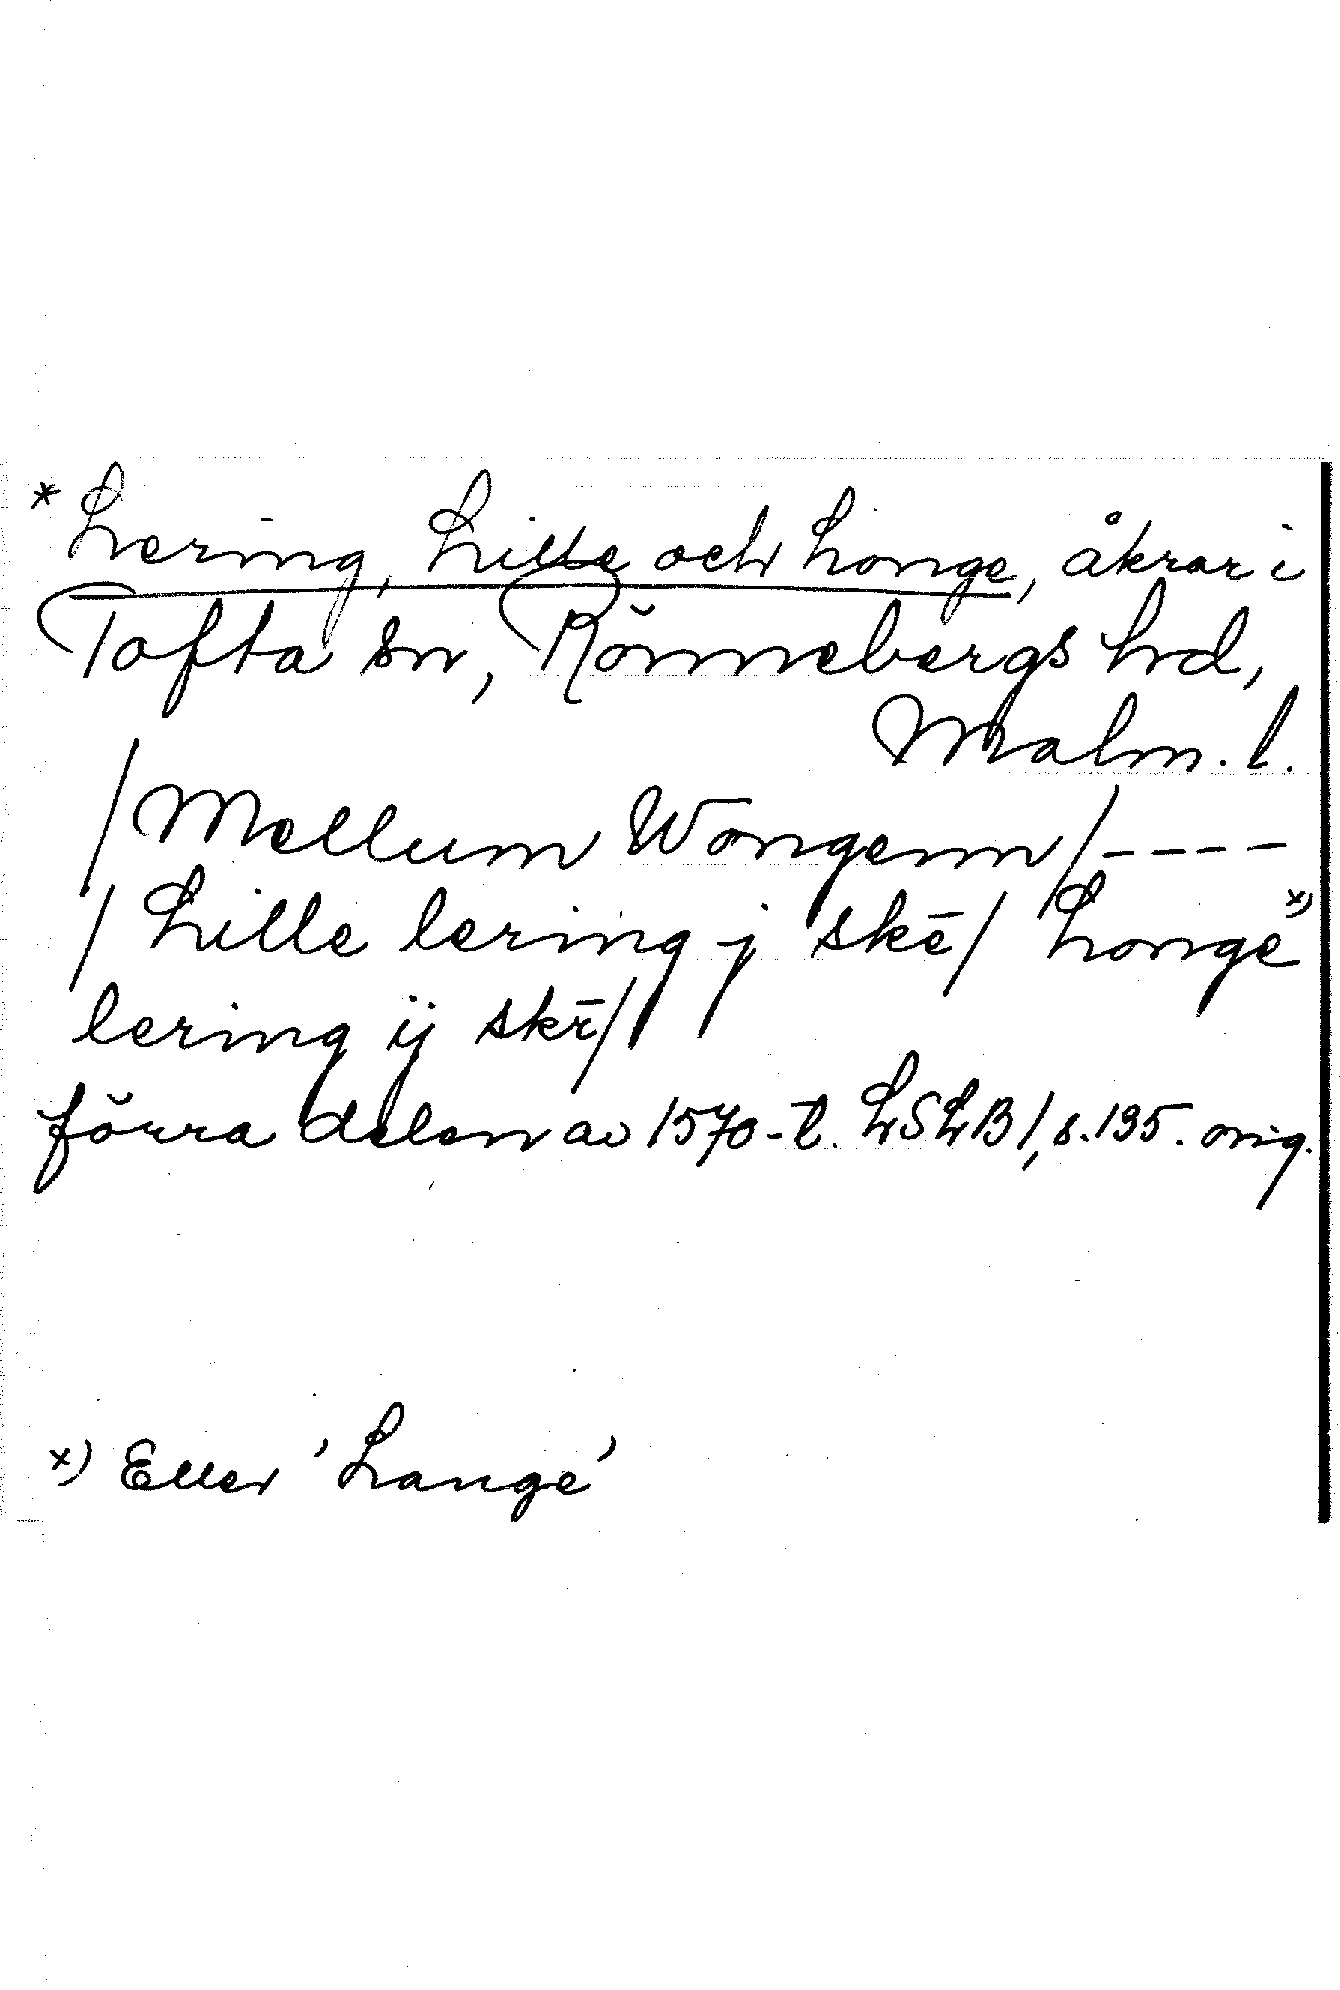 * Lering, Lille och Longe, åkrar i
Tofta sn, Rönnebergs hd,
Malm. l.
/Mellum Wongenn/----
/Lille lering j skē/ Longe x)
lering ij skē/
förra delen av 1570-t. LSLB I, s. 135. orig.
x) Eller 'Lange'